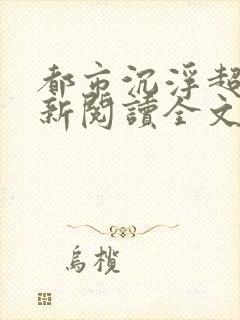 都市沉浮超
新閱讀全文
烏欖